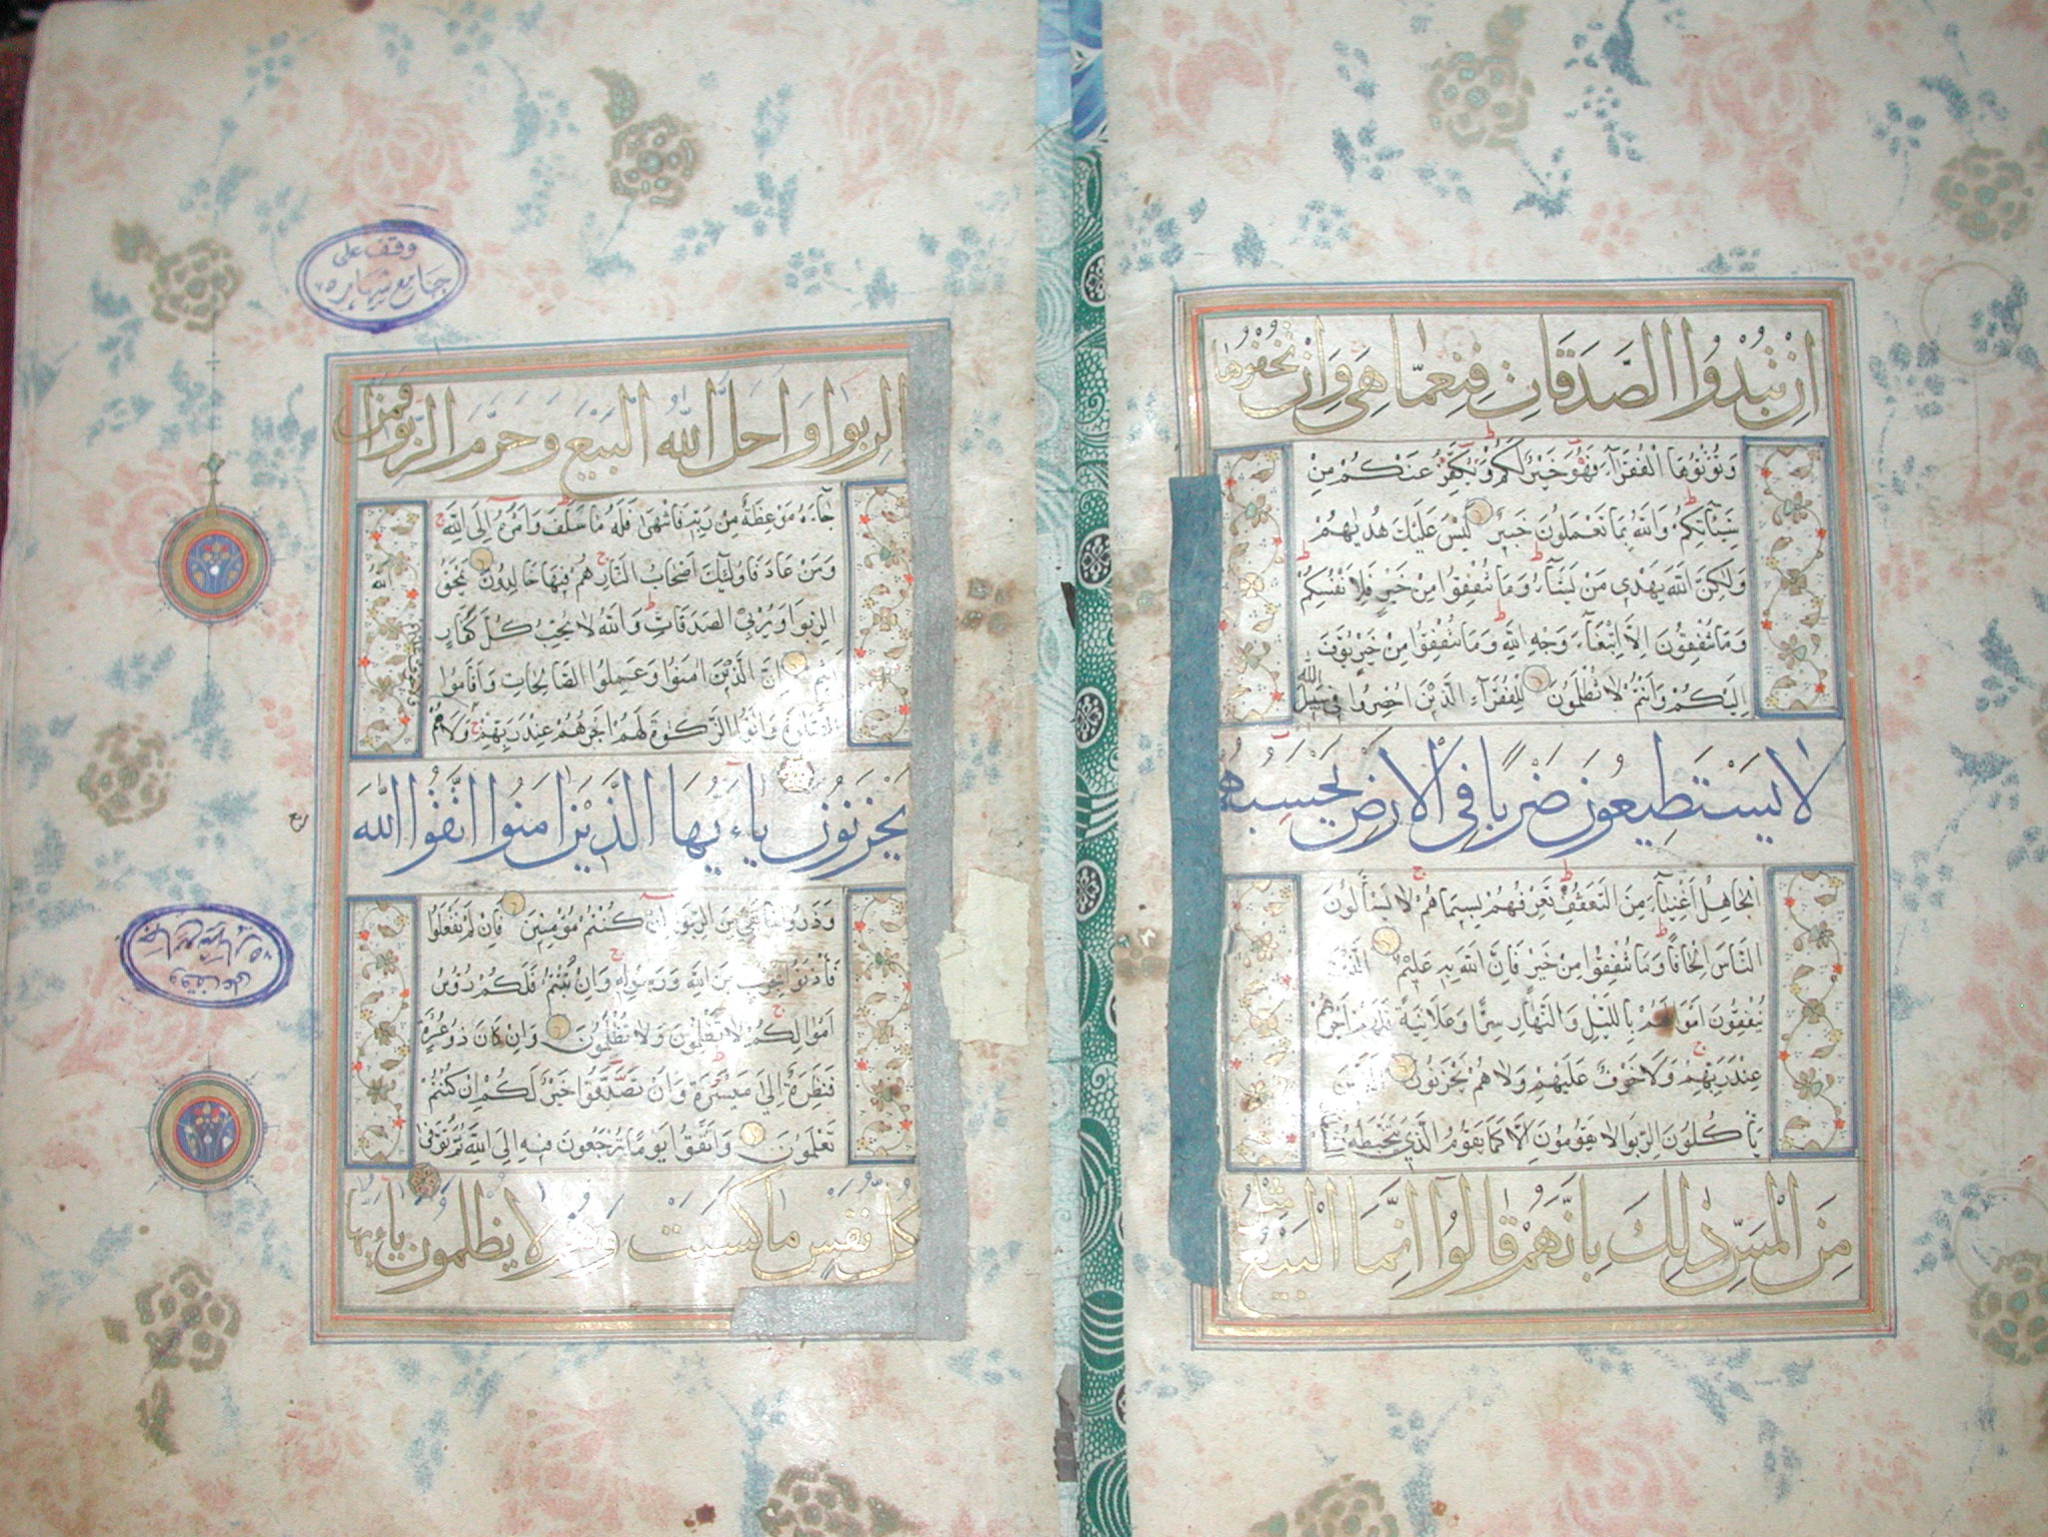 اِنْ تُبْدُوا الصَّدَقَاتِ فَنِعِمَّا هِيَ وَاِنْ تُخْفُوهَا
وَتُؤْتُوهَا الْفُقَرَآءَ فَهُوَ خَيْرٌ لَكُمْ وَيُكَفِّرُ عَنْكُمْ مِنْ
سَيِّئَاتِكُمْ وَاللّٰهُ بِمَا تَعْمَلُونَ خَبِيرٌ لَيْسَ عَلَيْكَ هُدٰيهُمْ
وَلٰكِنَّ اللّٰهَ يَهْدِي مَنْ يَشَآءُ وَمَا تُنْفِقُوا مِنْ خَيْرٍ فَلِاَنْفُسِكُمْ
وَمَا تُنْفِقُونَ اِلَّا ابْتِغَآءَ وَجْهِ اللّٰهِ وَمَا تُنْفِقُوا مِنْ خَيْرٍ يُوَفَّ
اِلَيْكُمْ وَاَنْتُمْ لَا تُظْلَمُونَ لِلْفُقَرَآءِ الَّذِينَ اُحْصِرُوا فِي سَبِيلِ اللّٰهِ
لَا يَسْتَطِيعُونَ ضَرْبًا فِي الْاَرْضِ يَحْسَبُهُمُ
الْجَاهِلُ اَغْنِيَآءَ مِنَ التَّعَفُّفِ تَعْرِفُهُمْ بِسِيمَاهُمْ لَا يَسْأَلُونَ
النَّاسَ اِلْحَافًا وَمَا تُنْفِقُوا مِنْ خَيْرٍ فَاِنَّ اللّٰهَ بِهِ عَلِيمٌ الَّذِينَ
يُنْفِقُونَ اَمْوَالَهُمْ بِاللَّيْلِ وَالنَّهَارِ سِرًّا وَعَلَانِيَةً فَلَهُمْ اَجْرُهُمْ
عِنْدَ رَبِّهِمْ وَلَا خَوْفٌ عَلَيْهِمْ وَلَا هُمْ يَحْزَنُونَ الَّذِينَ
يَأْكُلُونَ الرِّبٰوا لَا يَقُومُونَ اِلَّا كَمَا يَقُومُ الَّذِي يَتَخَبَّطُهُ الشَّيْطَانُ
مِنَ الْمَسِّ ذٰلِكَ بِاَنَّهُمْ قَالُوا اِنَّمَا الْبَيْعُ مِثْلُ
الرِّبٰوا وَاَحَلَّ اللّٰهُ الْبَيْعَ وَحَرَّمَ الرِّبٰوا فَمَنْ
جَآءَهُ مَوْعِظَةٌ مِنْ رَبِّهِ فَانْتَهٰى فَلَهُ مَا سَلَفَ وَاَمْرُهُ اِلَى اللّٰهِ
وَمَنْ عَادَ فَاُولٰئِكَ اَصْحَابُ النَّارِ هُمْ فِيهَا خَالِدُونَ يَمْحَقُ
اللّٰهُ
الرِّبٰوا وَيُرْبِي الصَّدَقَاتِ وَاللّٰهُ لَا يُحِبُّ كُلَّ كَفَّارٍ
اَثِيمٍ اِنَّ الَّذِينَ اٰمَنُوا وَعَمِلُوا الصَّالِحَاتِ وَاَقَامُوا
الصَّلٰوةَ وَاٰتَوُا الزَّكٰوةَ لَهُمْ اَجْرُهُمْ عِنْدَ رَبِّهِمْ وَلَا
يَحْزَنُونَ يَآءَيُّهَا الَّذِينَ اٰمَنُوا اتَّقُوا اللّٰهَ
وَذَرُوا مَا بَقِيَ مِنَ الرِّبٰوا اِنْ كُنْتُمْ مُؤْمِنِينَ فَاِنْ لَمْ تَفْعَلُوا
فَأْذَنُوا بِحَرْبٍ مِنَ اللّٰهِ وَرَسُولِهِ وَاِنْ تُبْتُمْ فَلَكُمْ رُؤُسُ
اَمْوَالِكُمْ لَا تَظْلِمُونَ وَلَا تُظْلَمُونَ وَاِنْ كَانَ ذُو عُسْرَةٍ
فَنَظِرَةٌ اِلٰى مَيْسَرَةٍ وَاَنْ تَصَدَّقُوا خَيْرٌ لَكُمْ اِنْ كُنْتُمْ
تَعْلَمُونَ وَاتَّقُوا يَوْمًا تُرْجَعُونَ فِيهِ اِلَى اللّٰهِ ثُمَّ تُوَفّٰى
كُلُّ نَفْسٍ مَا كَسَبَتْ وَهُمْ لَا يُظْلَمُونَ يَآءَيُّهَا
وقف على
جامع شهاره
وقف على
جامع شهاره